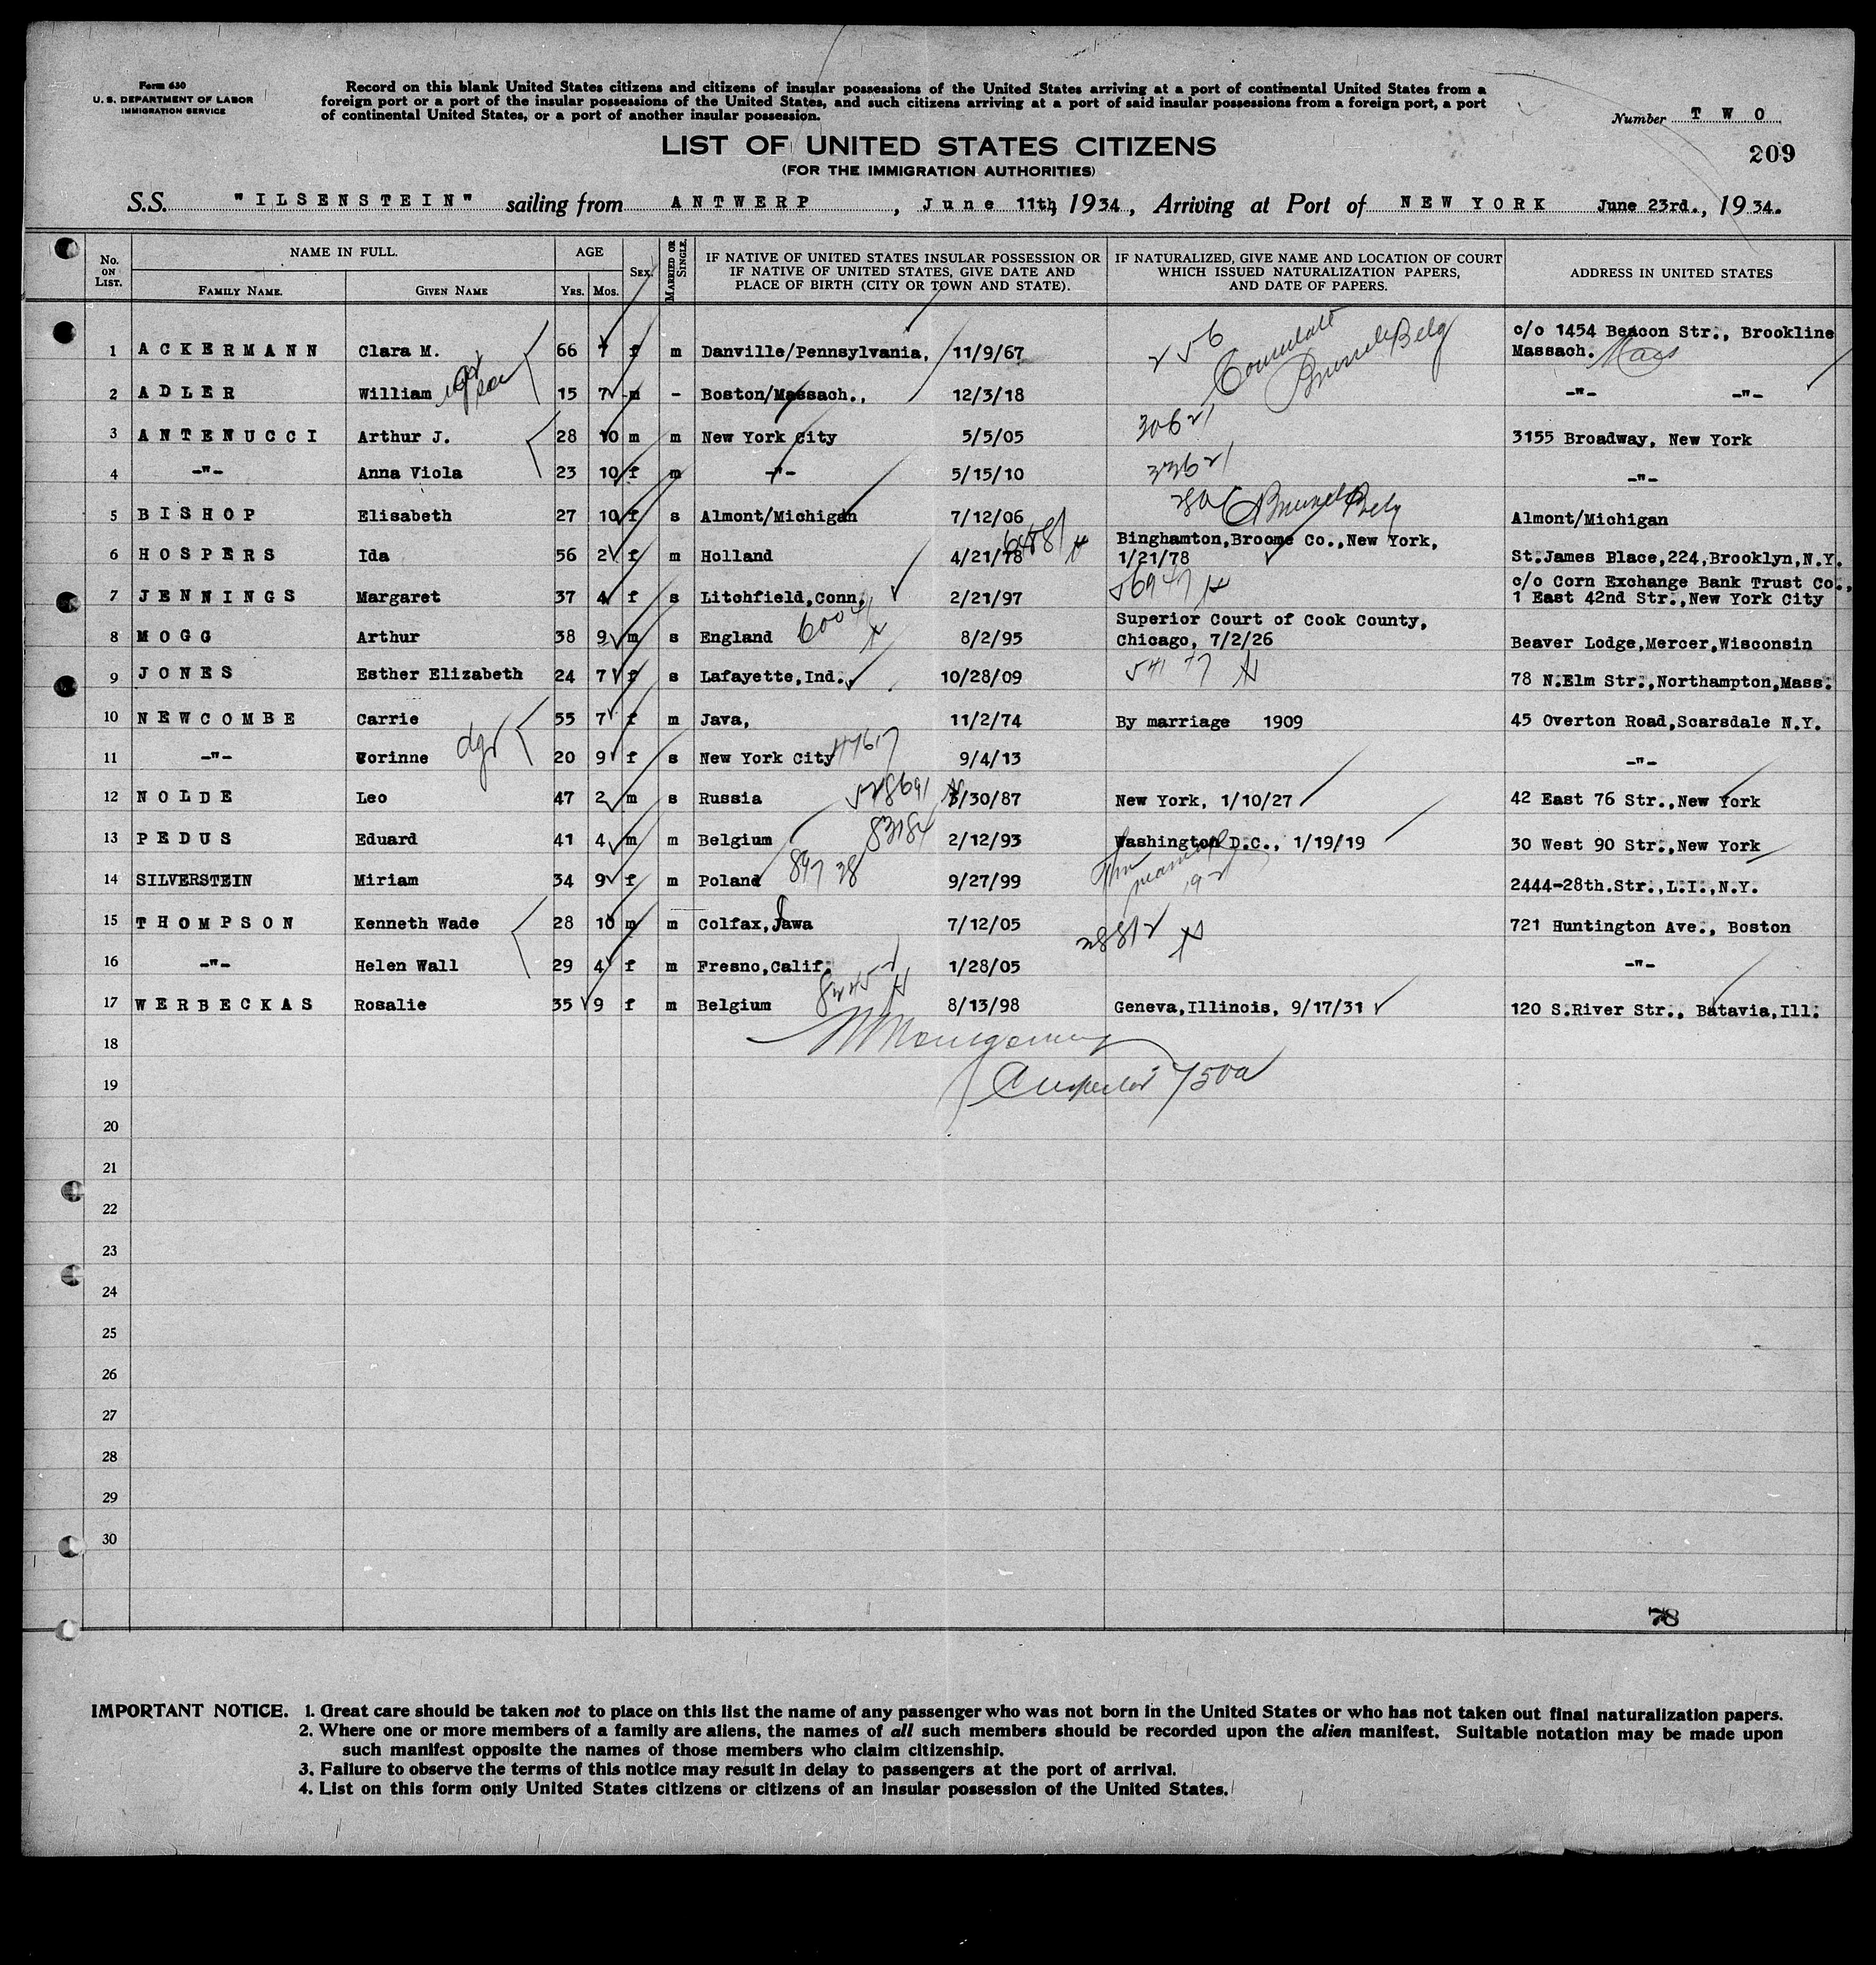 Form 630
U. S. DEPARTMENT OF LABOR
IMMIGRATION SERVICE
Record on this blank United States citizens and citizens of insular possessions of the United States arriving at a port of continental United States from a
foreign port or a port of the insular possessions of the United States, and such citizens arriving at a port of said insular possessions from a foreign port, a port
of continental United States, or a port of another insular possession.
Number T W O
209
LIST OF UNITED STATES CITIZENS
(FOR THE IMMIGRATION AUTHORITIES)
S.S. "ILSENSTEIN" sailing from ANTWERP, June 11th, 1934, Arriving at Port of NEW YORK June 23rd., 1934.
No. ON LIST. NAME IN FULL. FAMILY NAME. GIVEN NAME AGE YRS. MOS. SEX. MARRIED OR SINGLE. IF NATIVE OF UNITED STATES INSULAR POSSESSION OR IF NATIVE OF UNITED STATES, GIVE DATE AND PLACE OF BIRTH (CITY OR TOWN AND STATE). IF NATURALIZED, GIVE NAME AND LOCATION OF COURT WHICH ISSUED NATURALIZATION PAPERS, AND DATE OF PAPERS. ADDRESS IN UNITED STATES
1 ACKERMANN Clara M. 66 7 f m Danville/Pennsylvania, 11/9/67 256 Consulate Brussels Belg c/o 1454 Beacon Str., Brookline Massach. Mass
2 ADLER William son 15 7 m - Boston/Massach., 12/3/18 -"- -"-
3 ANTENUCCI Arthur J. 28 10 m m New York City 5/5/05 30621 3155 Broadway, New York
4 -"- Anna Viola 23 10 f m -"- 5/15/10 33621 -"-
5 BISHOP Elisabeth 27 10 f s Almont/Michigan 7/12/06 Brussels Belg Almont/Michigan
6 HOSPERS Ida 56 2 f m Holland 4/21/78 Binghamton,Broome Co.,New York, 1/21/78 St.James Blace,224,Brooklyn,N.Y.
7 JENNINGS Margaret 37 4 f s Litchfield,Conn. 2/21/97 56947 c/o Corn Exchange Bank Trust Co., 1 East 42nd Str.,New York City
8 MOGG Arthur 38 9 m s England 8/2/95 Superior Court of Cook County, Chicago, 7/2/26 Beaver Lodge,Mercer,Wisconsin
9 JONES Esther Elizabeth 24 7 f s Lafayette,Ind. 10/28/09 54177 78 N.Elm Str.,Northampton,Mass.
10 NEWCOMBE Carrie 55 7 f m Java, 11/2/74 By marriage 1909 45 Overton Road,Scarsdale N.Y.
11 -"- Corinne dgr 20 9 f s New York City 47617 9/4/13 -"-
12 NOLDE Leo 47 2 m s Russia 528691 3/30/87 New York, 1/10/27 42 East 76 Str.,New York
13 PEDUS Eduard 41 4 m m Belgium 83184 2/12/93 Washington D.C., 1/19/19 30 West 90 Str.,New York
14 SILVERSTEIN Miriam 34 9 f m Poland 89738 9/27/99 2444-28th.Str.,L.I.,N.Y.
15 THOMPSON Kenneth Wade 28 10 m m Colfax,Jawa 7/12/05 28812 721 Huntington Ave., Boston
16 -"- Helen Wall 29 4 f m Fresno,Calif. 1/28/05 -"-
17 WERBECKAS Rosalie 35 9 f m Belgium 8/13/98 Geneva,Illinois, 9/17/31 120 S.River Str., Batavia,Ill.
18 Montgomery
19 Inspector 750a
20
21
22
23
24
25
26
27
28
29
30
78
IMPORTANT NOTICE. 1. Great care should be taken not to place on this list the name of any passenger who was not born in the United States or who has not taken out final naturalization papers.
2. Where one or more members of a family are aliens, the names of all such members should be recorded upon the alien manifest. Suitable notation may be made upon
such manifest opposite the names of those members who claim citizenship.
3. Failure to observe the terms of this notice may result in delay to passengers at the port of arrival.
4. List on this form only United States citizens or citizens of an insular possession of the United States.